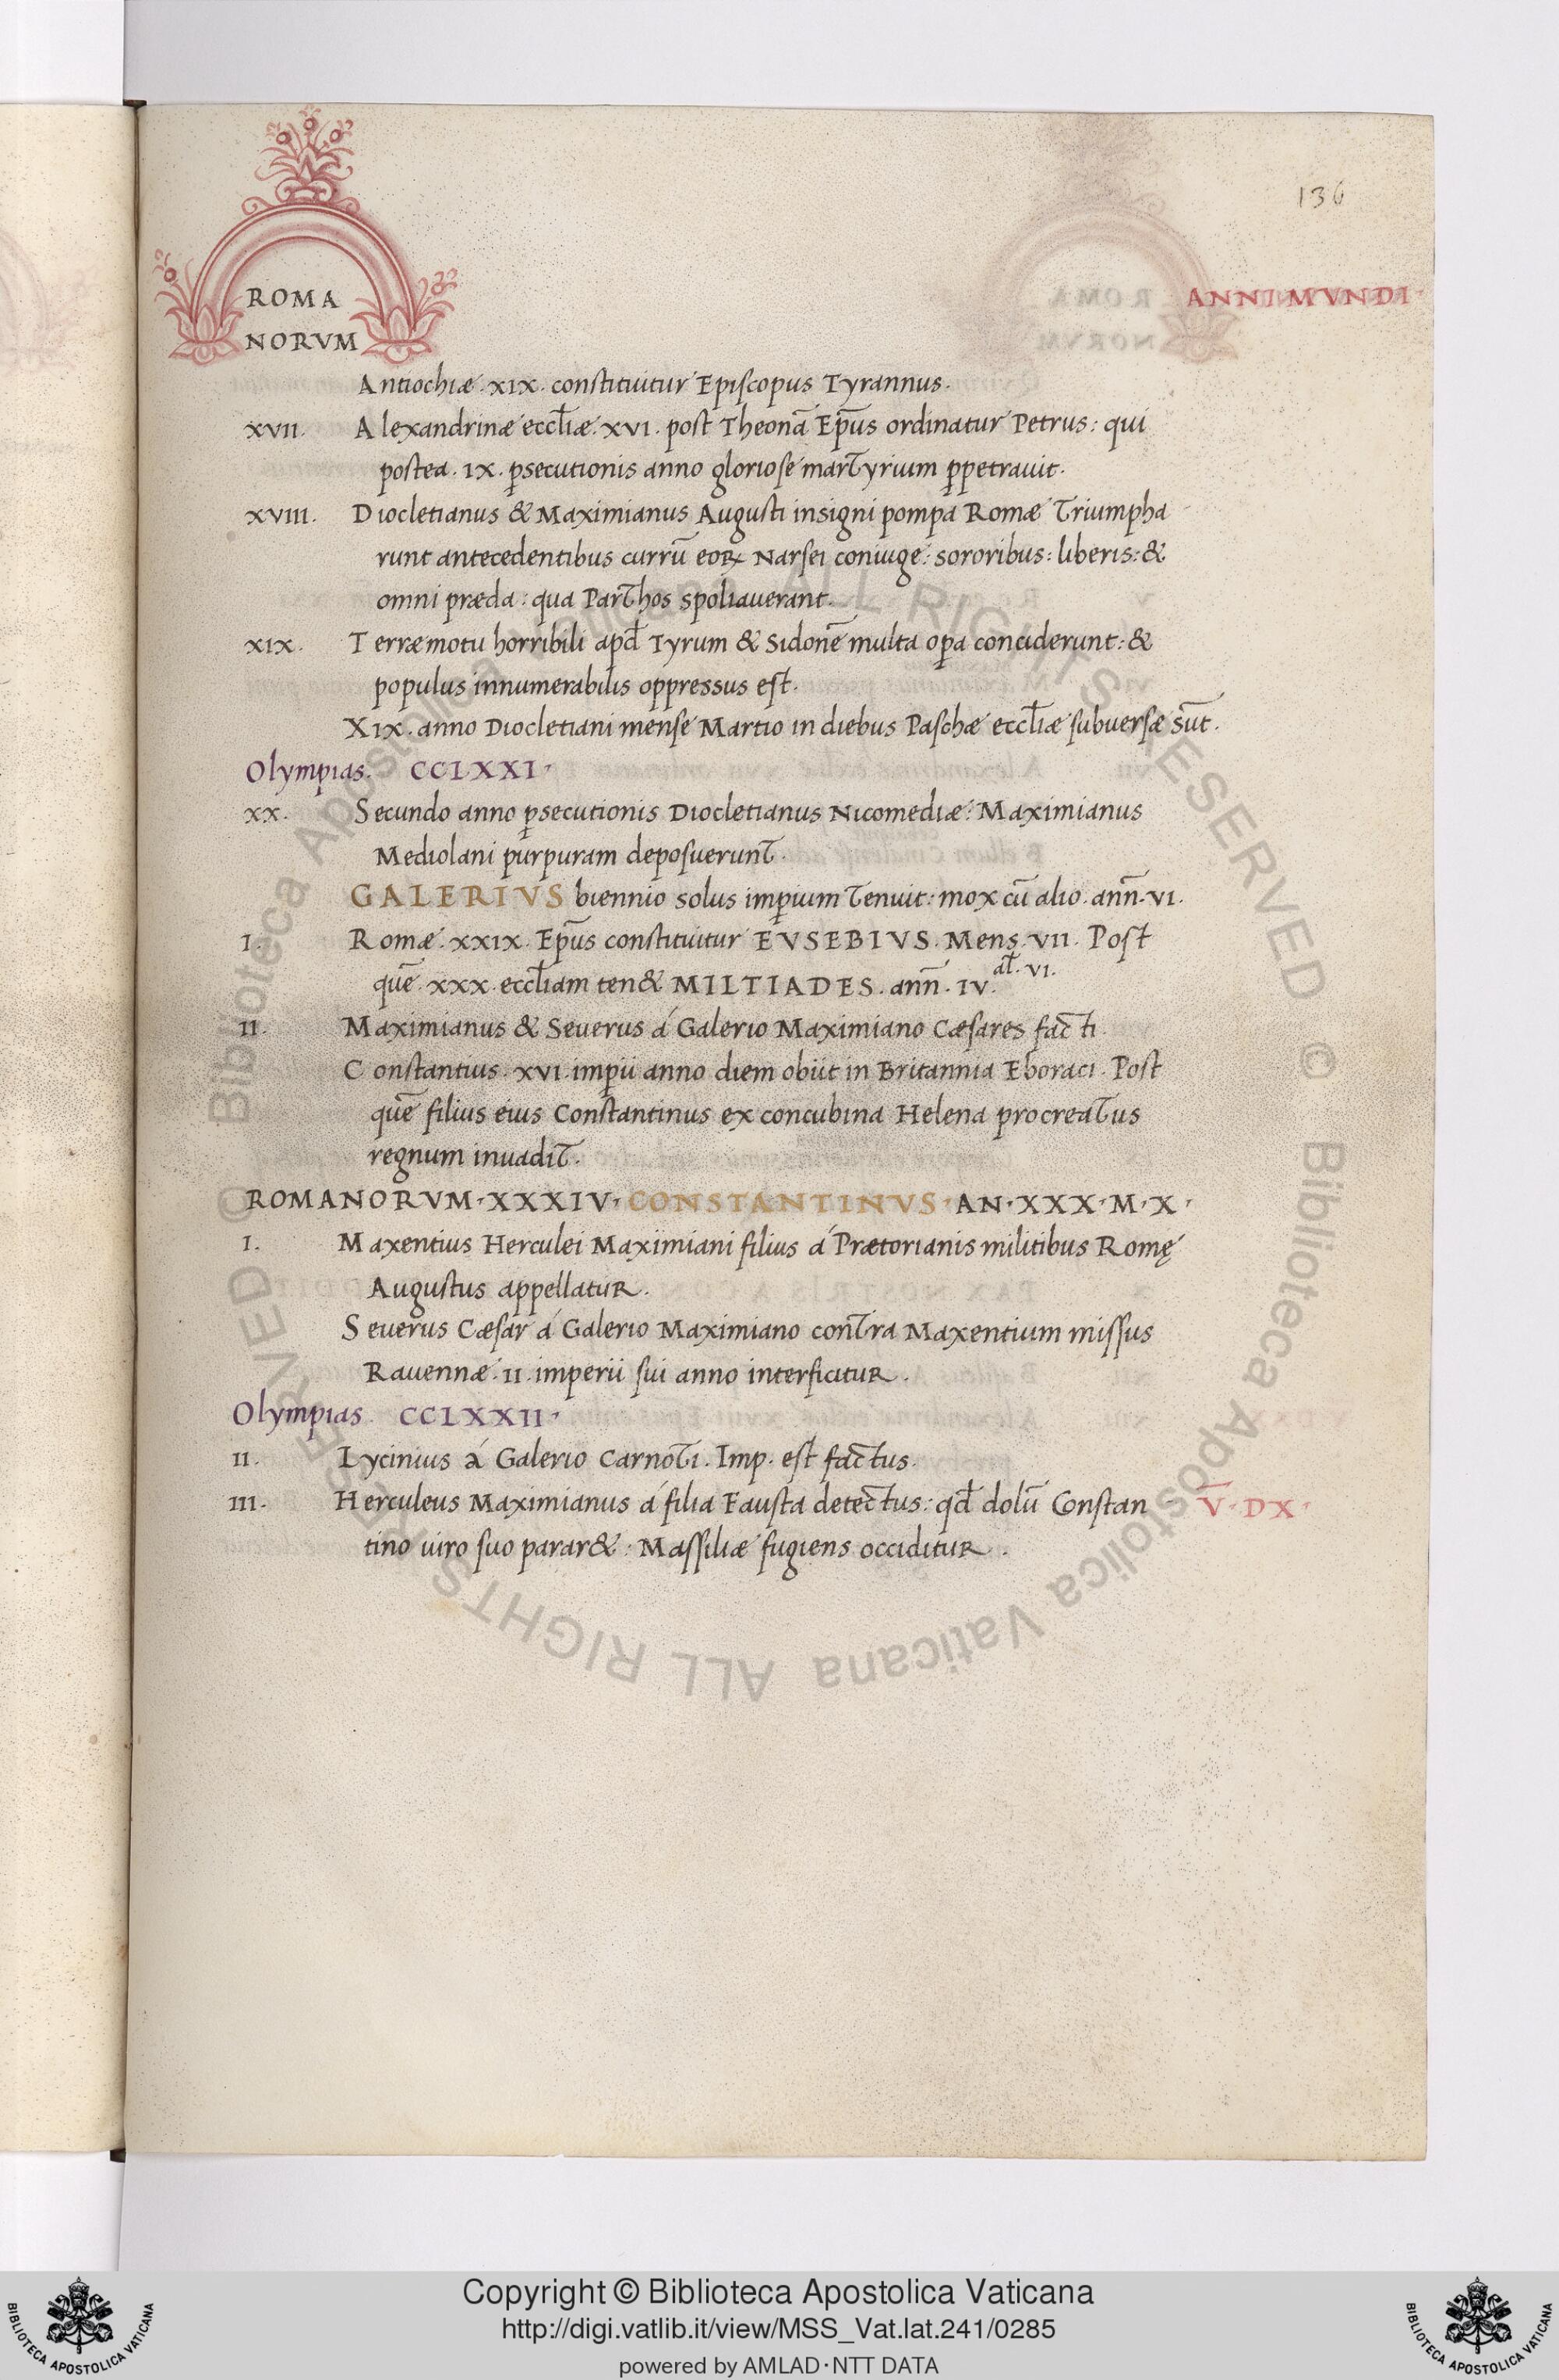 136
ROMA
NORVM
ANNI MVNDI
Antiochiæ. XIX. constituitur Episcopus Tyrannus.
XVII. Alexandrinæ eccl̄iæ. XVI. post Theonā Ep̄us ordinatur Petrus: qui
postea. IX. p̲secutionis anno gloriose martyrium p̲petrauit.
XVIII. Diocletianus & Maximianus Augusti insigni pompa Romæ Triumpha
runt antecedentibus currū eoꝝ Narsei coniuge: sororibus: liberis: &
omni præda: qua Parthos spoliauerant.
XIX. Terræmotu horribili apd̄ Tyrum & Sidonē multa op̲a conciderunt: &
populus innumerabilis oppressus est.
XIX. anno Diocletiani mense Martio in diebus Paschæ eccl̄iæ subuersæ sūt.
Olympias. CCLXXI.
XX. Secundo anno p̲secutionis Diocletianus Nicomediæ: Maximianus
Mediolani purpuram deposuerunt.
GALERIVS biennio solus imp̲ium tenuit: mox cū alio. ann̄. VI.
I. Romæ. XXIX. Ep̄us constituitur EVSEBIVS. Mens. VII. Post
quē. XXX. eccl̄iam ten& MILTIADES. ann̄. IV. al̄. VI.
II. Maximianus & Seuerus á Galerio Maximiano Cæsares facti.
Constantius. XVI. imp̲ii anno diem obiit in Britannia Eboraci. Post
quē filius eius Constantinus ex concubina Helena procreatus
regnum inuadit.
ROMANORVM. XXXIV. CONSTANTINVS. AN. XXX. M. X.
I. Maxentius Herculei Maximiani filius á Prætorianis militibus Romę
Augustus appellatur.
Seuerus Cæsar á Galerio Maximiano contra Maxentium missus
Rauennæ. II. imperii sui anno interficitur.
Olympias. CCLXXII.
II. Lycinius á Galerio Carnoti. Imp. est factus.
III. Herculeus Maximianus á filia Fausta detectus: qd̄ dolū Constan V̄. DX.
tino uiro suo parar&: Massiliæ fugiens occiditur.
© Biblioteca Apostolica Vaticana ALL RIGHTS RESERVED © Biblioteca Apostolica Vaticana ALL RIGHTS RESERVED
Copyright © Biblioteca Apostolica Vaticana
http://digi.vatlib.it/view/MSS_Vat.lat.241/0285
powered by AMLAD·NTT DATA
BIBLIOTECA APOSTOLICA VATICANA
BIBLIOTECA APOSTOLICA VATICANA